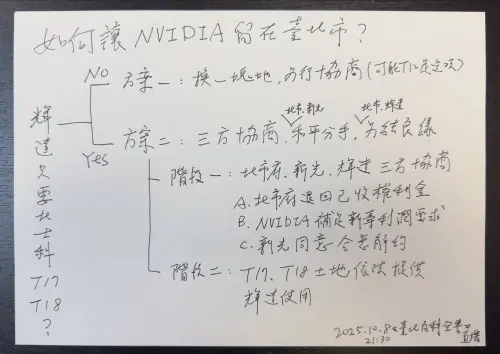 如何讓 NVIDIA 留在臺北市?
輝達久要北士科 T17 T18?
NO 方案一:換一塊地,另行協商(可能T12是選項)
北市.新光 北市.輝達
Yes 方案二:三方協商,和平分手,另結良緣
階段一:北市府.新光.輝達三方協商
A.北市府退回已收權利金
B.NVIDIA補足新壽利潤要求
C.新光同意合意解約
階段二:T17、T18土地依法提供
輝達使用
2025.10.8
21:30 直播